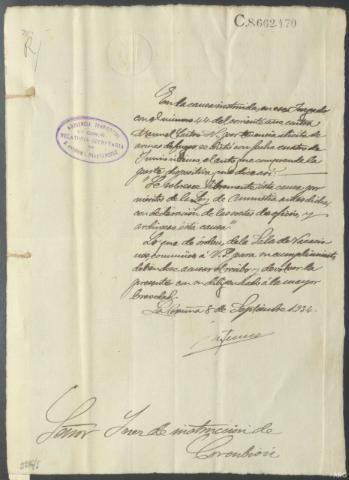 C.8662170
AUDIENCIA TERRITORIAL
DE LA CORUÑA
RELATORIA SECRETARIA
DE
En la causa instruida, en ese Juzgado
con el número 44 del corriente año contra
Manuel por tenencia ilícita de
armas de fuego se dictó con fecha cuatro de
Junio el auto que comprende la
parte dispositiva que dice así:
"Se sobresee libremente esta causa por
ministerio de la Ley de Amnistía
con declaración de las costas de oficio, y
archívese esta causa."
Lo que de orden, de la Sala de Vacacio
nes comunico á V.S. para su cumplimiento
debiendo acusar el recibo y devolver la
presente con diligenciado á la mayor
brevedad.
La Coruña 8 de Septiembre 1934.
Señor Juez de instrucción de
Corcubión